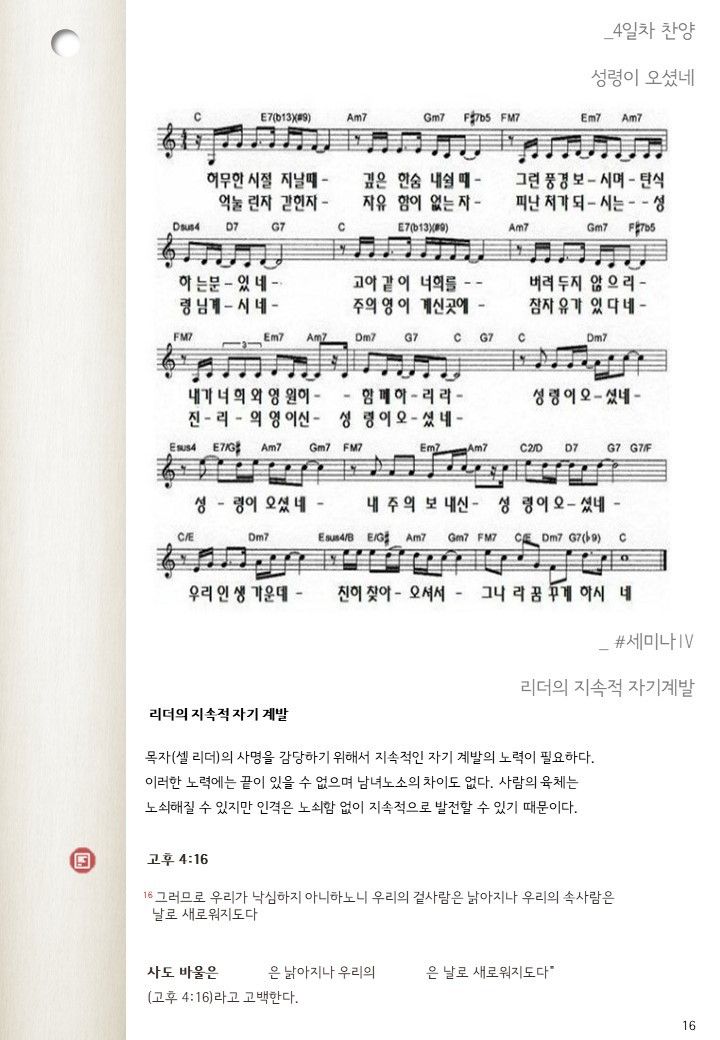 _4일차 찬양
성령이 오셨네
C E7(b13)(#9) Am7 Gm7 F#7b5 FM7 Em7 Am7
허무한 시절 지날때 - 깊은 한숨 내쉴 때 - 그런 풍경 보 - 시며 - 탄식
억눌 린자 갇힌자 - 자유 함이 없는 자 - 피난 처가 되 - 시는 - - 성
Dsus4 D7 G7 C E7(b13)(#9) Am7 Gm7 F#7b5
하 는분 - 있 네 - 고아 같 이 너희를 - - 버려 두지 않 으 리 -
령 님계 - 시 네 - 주의 영 이 계신곳에 - 참자 유가 있 다 네 -
FM7 3 Em7 Am7 Dm7 G7 C G7 C Dm7
내가 너 희 와 영 원히 - - 함 께 하 - 리 라 - 성 령 이 오 - 셨네 -
진 - 리 - 의 영 이신 - 성 령 이 오 - 셨 네 -
Esus4 E7/G# Am7 Gm7 FM7 Em7 Am7 C2/D D7 G7 G7/F
성 - 령이 오셨 네 - 내 주 의 보 내신 - 성 령이 오 - 셨네 -
C/E Dm7 Esus4/B E/G# Am7 Gm7 FM7 C/E Dm7 G7(b9) C
우리 인 생 가운데 - 친히 찾아 - 오셔서 - 그나 라 꿈 꾸게 하시 네
_ #세미나Ⅳ
리더의 지속적 자기계발
리더의 지속적 자기 계발
목자(셀 리더)의 사명을 감당하기 위해서 지속적인 자기 계발의 노력이 필요하다.
이러한 노력에는 끝이 있을 수 없으며 남녀노소의 차이도 없다. 사람의 육체는
노쇠해질 수 있지만 인격은 노쇠함 없이 지속적으로 발전할 수 있기 때문이다.
고후 4:16
16 그러므로 우리가 낙심하지 아니하노니 우리의 겉사람은 낡아지나 우리의 속사람은
날로 새로워지도다
사도 바울은 은 낡아지나 우리의 은 날로 새로워지도다”
(고후 4:16)라고 고백한다.
16